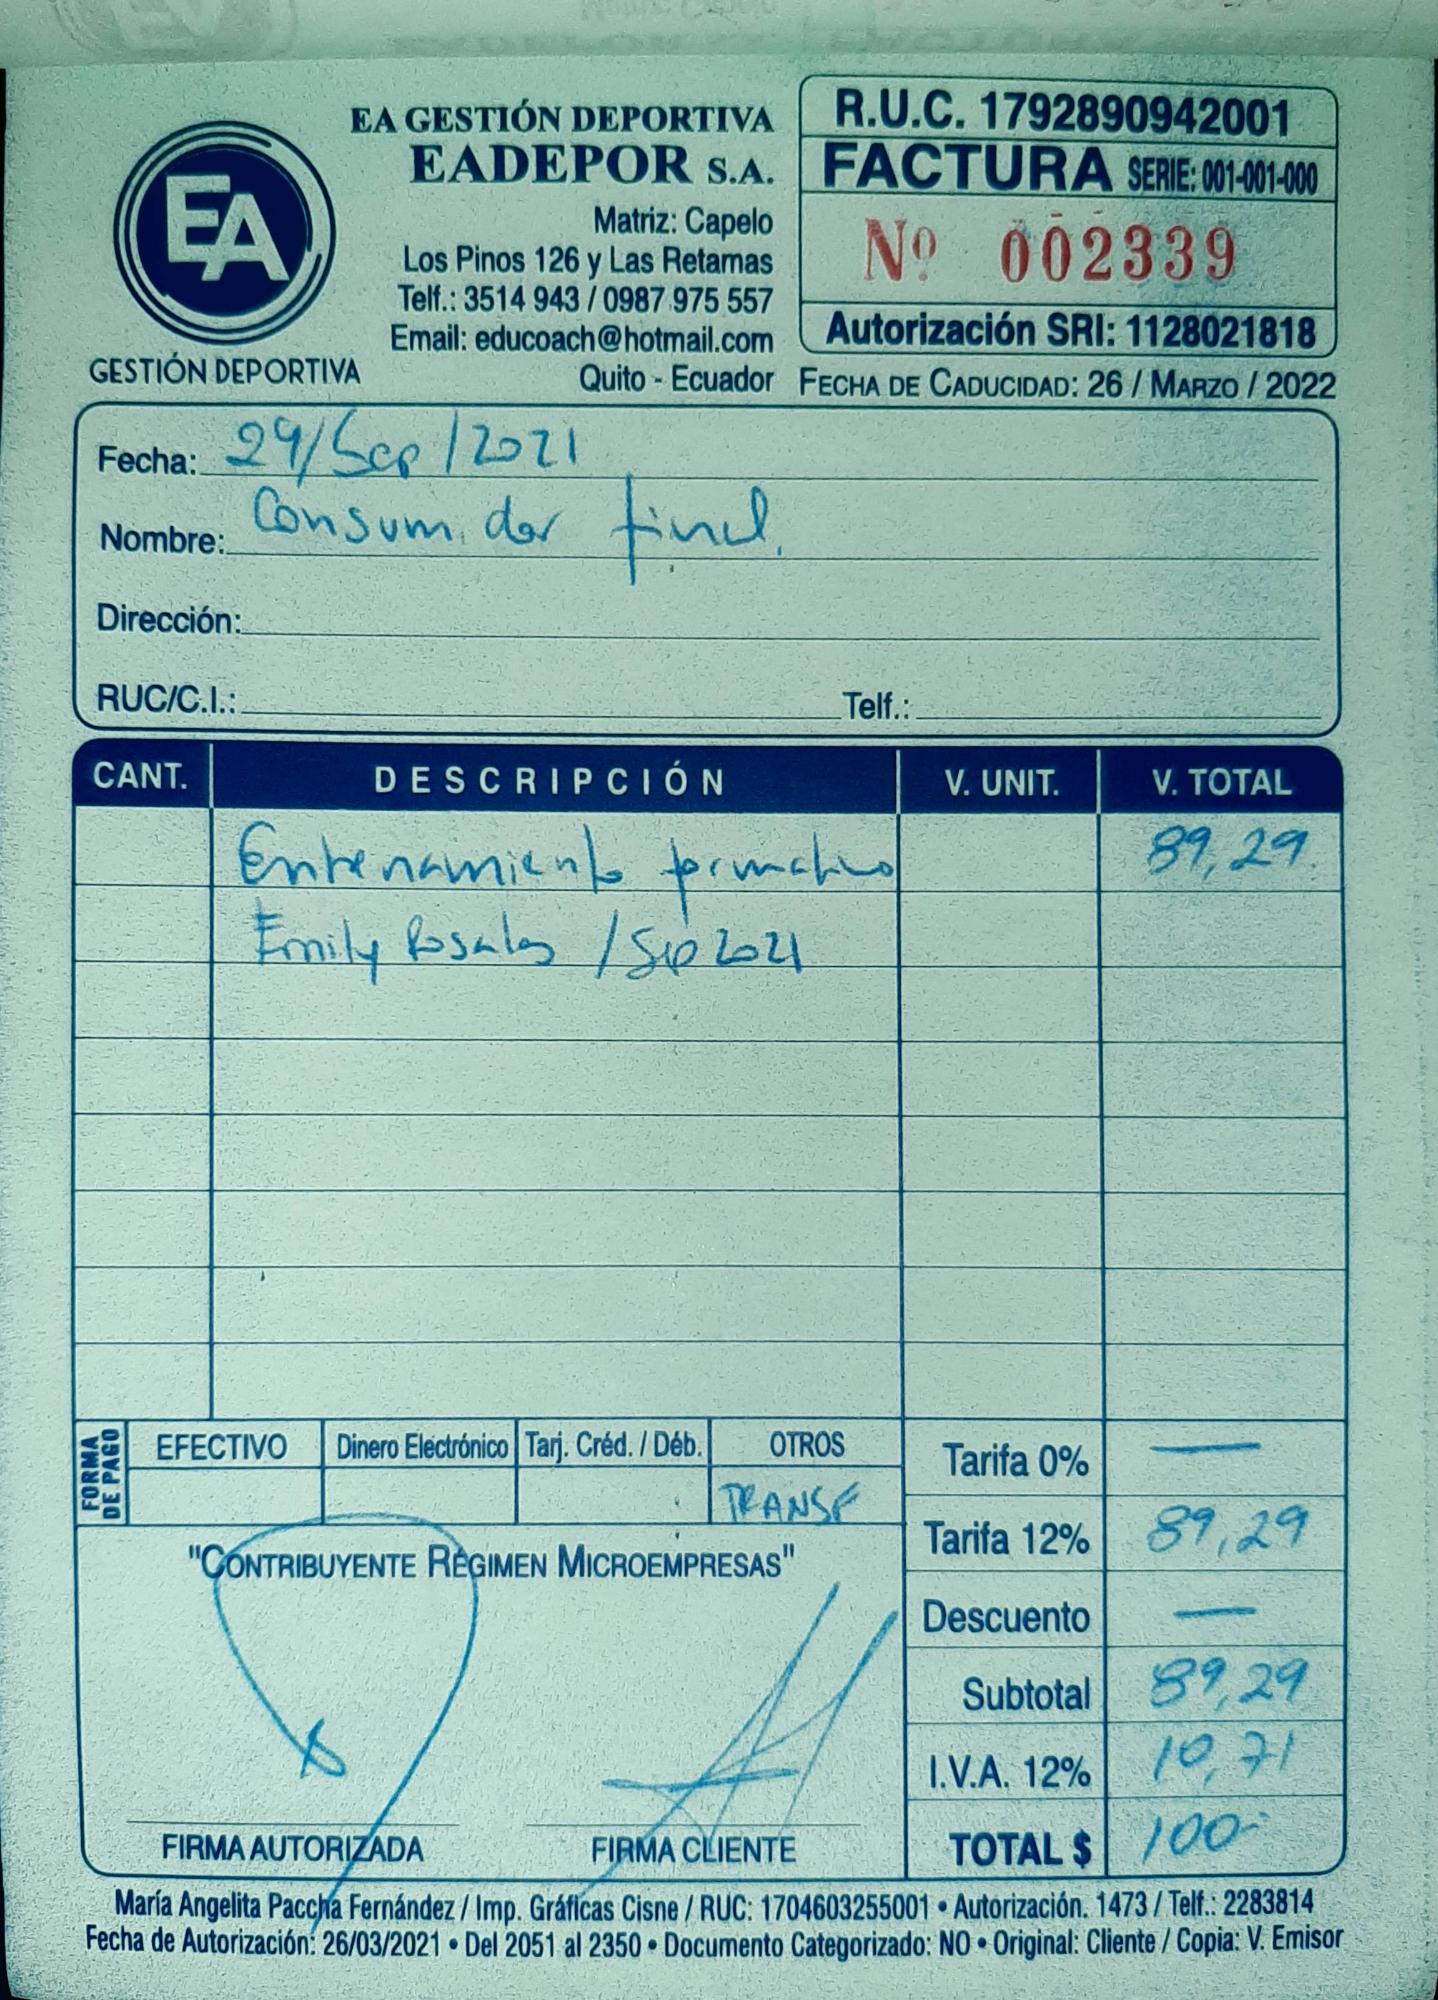 EA
GESTIÓN DEPORTIVA
EA GESTIÓN DEPORTIVA
EADEPOR S.A.
Matriz: Capelo
Los Pinos 126 y Las Retamas
Telf.: 3514 943 / 0987 975 557
Email: educoach@hotmail.com
Quito - Ecuador
R.U.C. 1792890942001
FACTURA SERIE: 001-001-000
Nº 002339
Autorización SRI: 1128021818
FECHA DE CADUCIDAD: 26 / MARZO / 2022
Fecha: 29/Sep/2021
Nombre: Consumidor final.
Dirección:
RUC/C.I.: Telf.:
CANT. DESCRIPCIÓN V. UNIT. V. TOTAL
Entrenamiento formativo 89,29
Emily Rosales / Sep 2021
FORMA DE PAGO
EFECTIVO Dinero Electrónico Tarj. Créd. / Déb. OTROS
TRANSF
Tarifa 0% —
Tarifa 12% 89,29
Descuento —
Subtotal 89,29
I.V.A. 12% 10,71
TOTAL $ 100-
"CONTRIBUYENTE RÉGIMEN MICROEMPRESAS"
FIRMA AUTORIZADA FIRMA CLIENTE
María Angelita Paccha Fernández / Imp. Gráficas Cisne / RUC: 1704603255001 • Autorización. 1473 / Telf.: 2283814
Fecha de Autorización: 26/03/2021 • Del 2051 al 2350 • Documento Categorizado: NO • Original: Cliente / Copia: V. Emisor